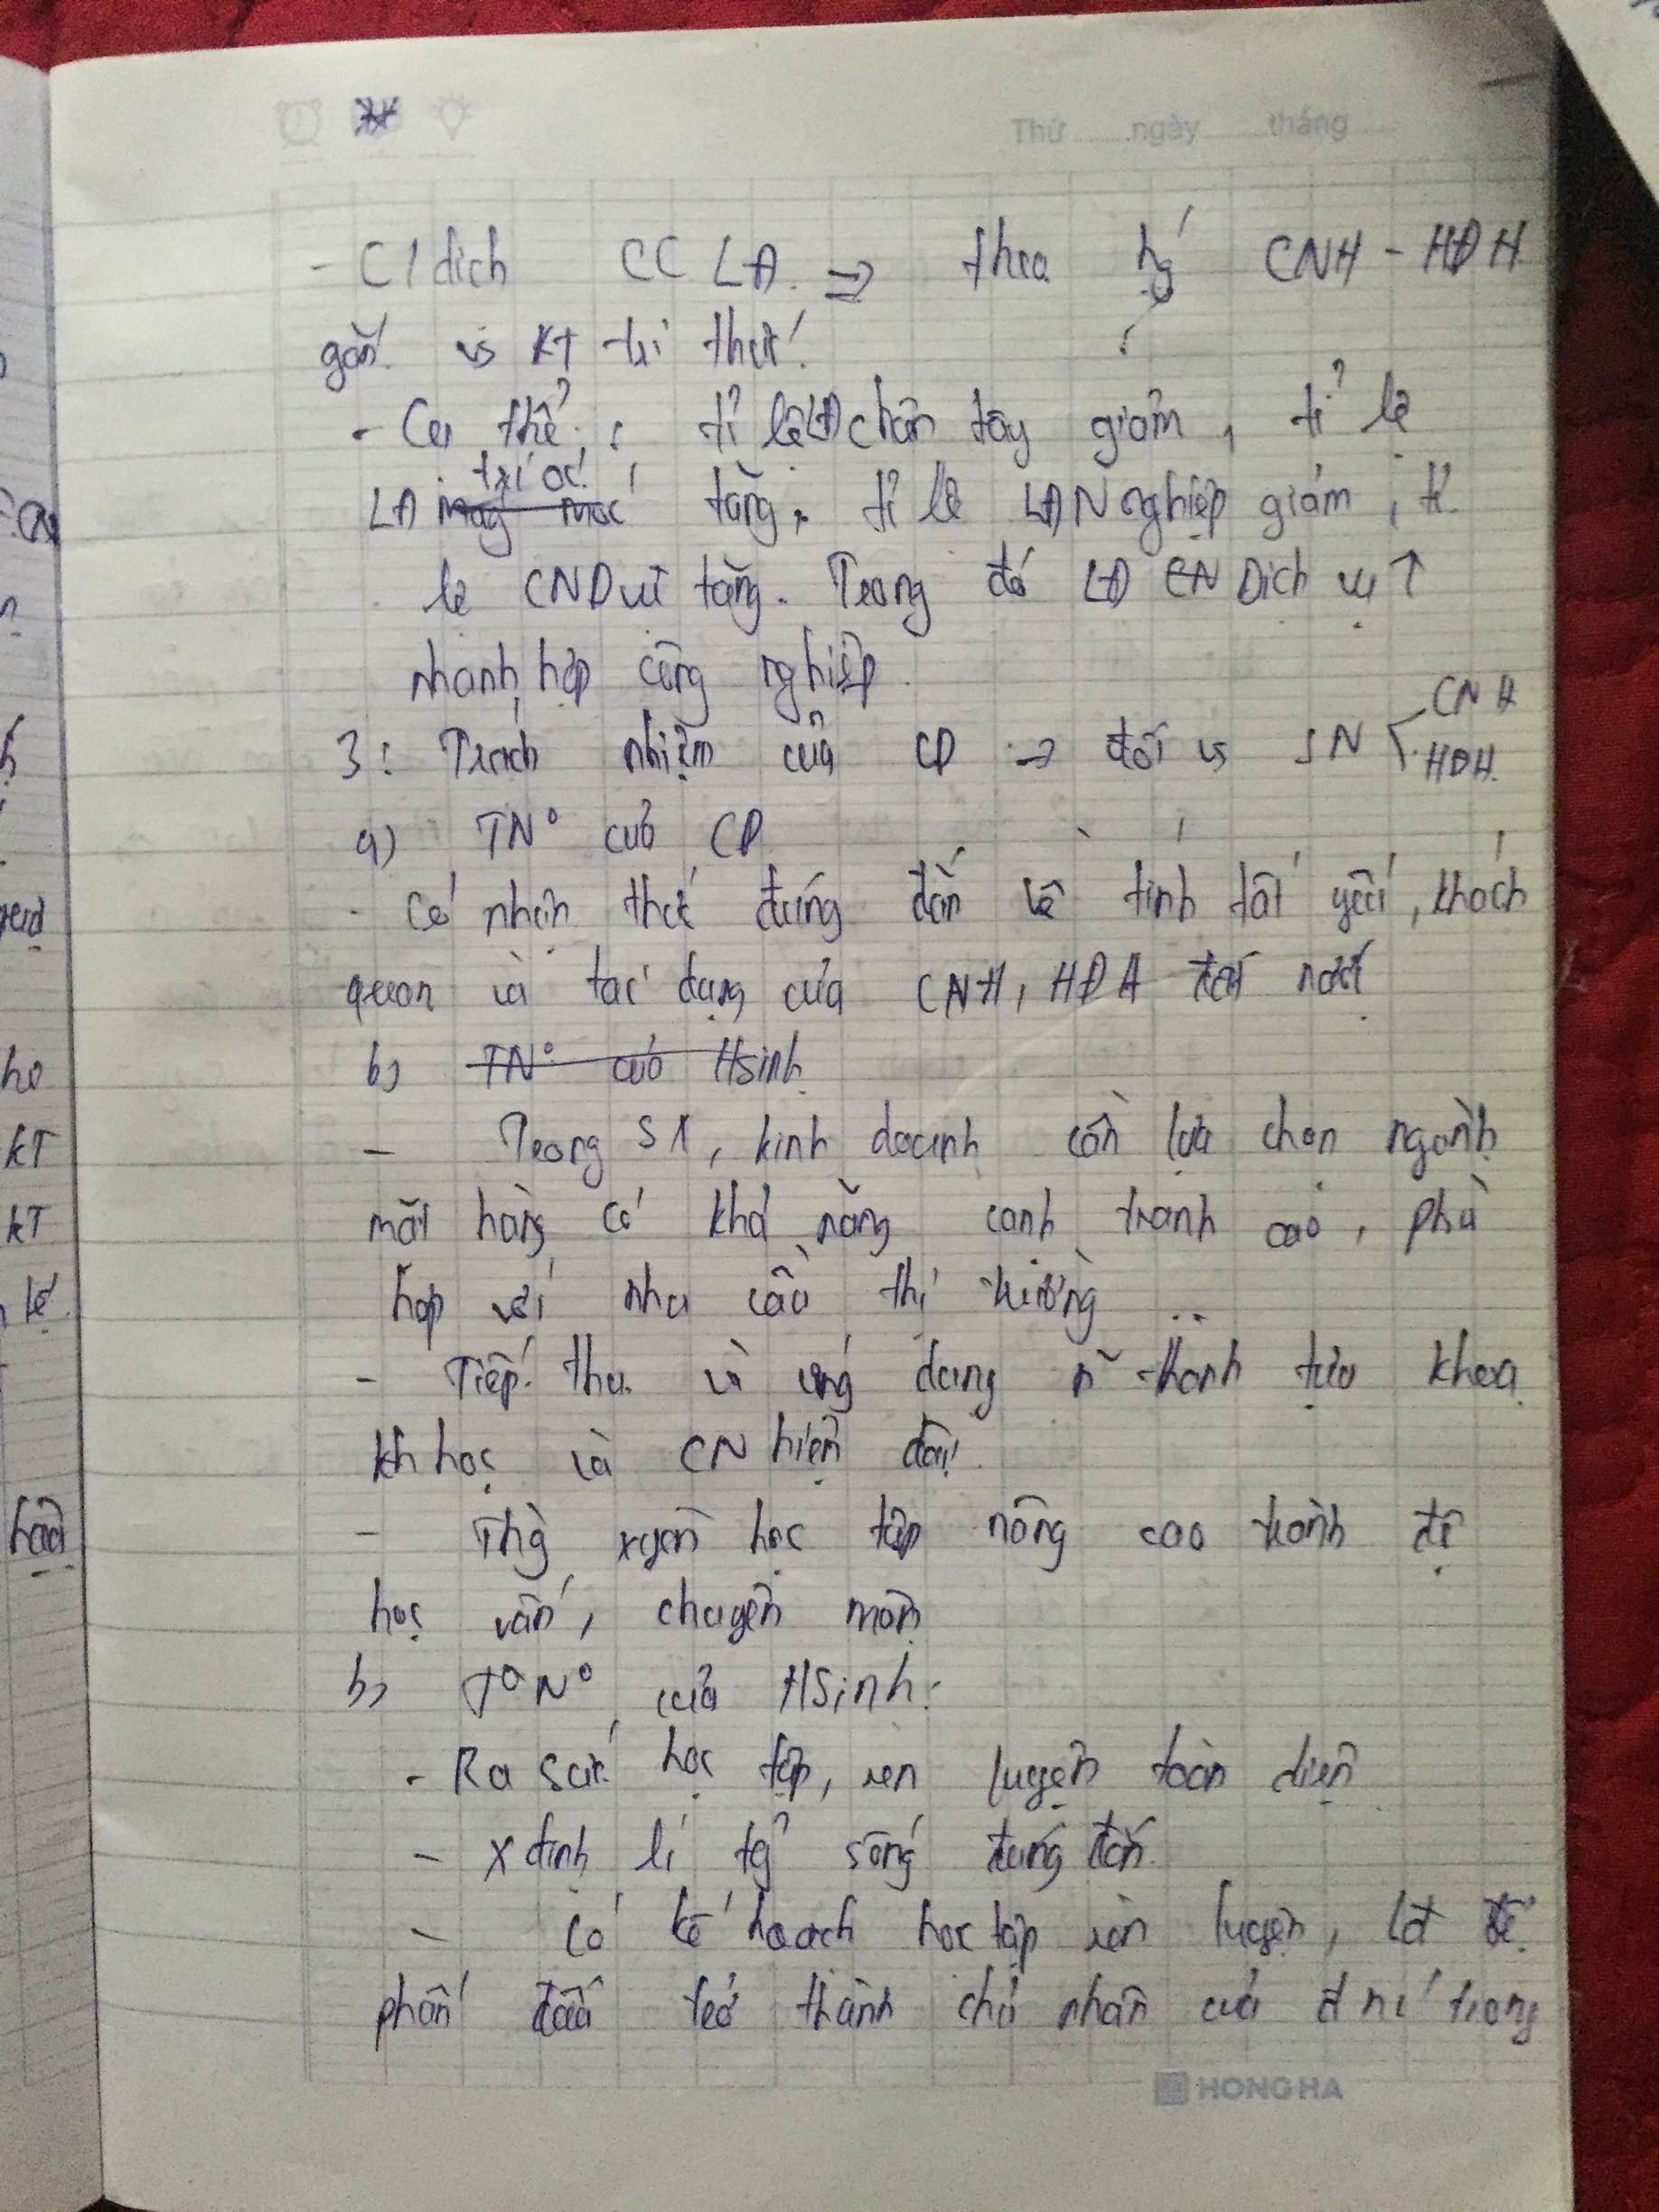 Thứ ngày tháng
- C/dịch CC LĐ ⇒ theo hg CNH - HĐH
gắn vs KT tri thức.
- Cụ thể : tỉ lệ LĐ chân tay giảm, tỉ lệ
LĐ máy móc trí óc tăng, tỉ lệ LĐ Nghiệp giảm, tỉ
lệ CNDvụ tăng. Trong đó LĐ CN Dịch vụ ↑
nhanh hơn công nghiệp.
3: Trách nhiệm của CD → đối vs SN < CNH
HĐH.
a) TN° của CD
- Có nhận thức đúng đắn về tính tất yếu, khách
quan và tác dụng của CNH, HĐH đất nước
b) TN° của Hsinh
- Trong SX, kinh doanh cần lựa chọn ngành
mặt hàng có khả năng cạnh tranh cao, phù
hợp với nhu cầu thị trường ..
- Tiếp thu và ứng dụng n~ thành tựu khoa
kh học và CN hiện đại.
- Thg xuyên học tập nâng cao trình độ
học vấn, chuyên môn
b) T°N° của HSinh.
- Ra sức học tập, rèn luyện toàn diện
- Xđịnh lí tg sống đúng đắn.
- Có kế hoạch học tập rèn luyện, lđ để
phấn đấu trở thành chủ nhân của đ nc trong
HONG HA
KT
KT